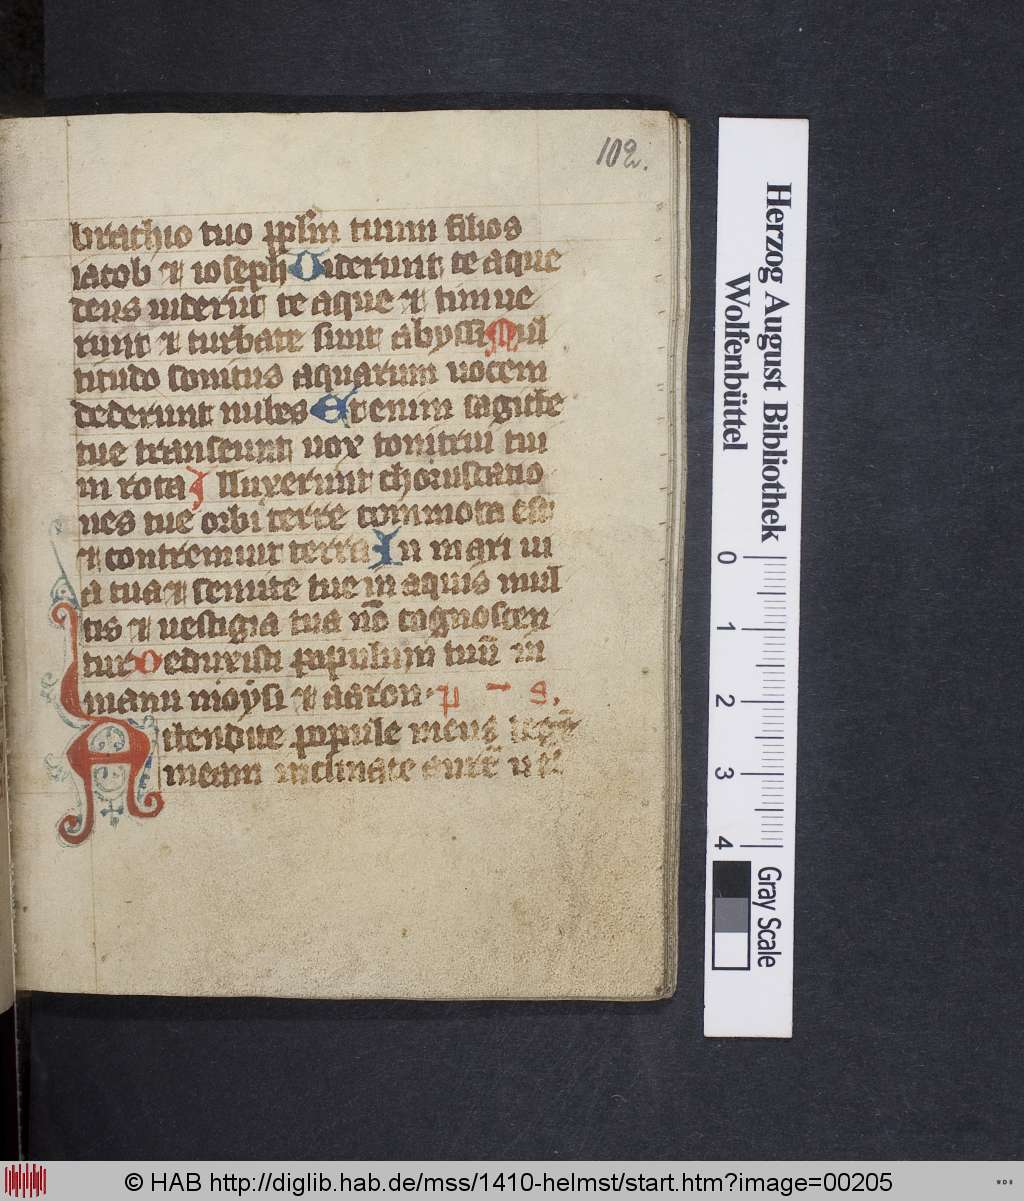 102.
brachio tuo pplm tuum filios
iacob & ioseph Uiderunt te aque
deus uiderūt te aque & timue
runt & turbate sunt abyssi Mul
titudo sonitus aquarum uocem
dederunt nubes Etenim sagitte
tue transeunt uox tonitrui tui
in rota Illuxerunt choruscatio
nes tue orbi terre commota est
& contremuit terra In mari ui
a tua & semite tue in aquis mul
tis & uestigia tua nō cognoscen
tur Deduxisti populum tuū in
manu moysi & aaron. p s.
Attendite popule meus legē
meam inclinate aurē
Herzog August Bibliothek
Wolfenbüttel
0 1 2 3 4
Gray Scale
© HAB http://diglib.hab.de/mss/1410-helmst/start.htm?image=00205